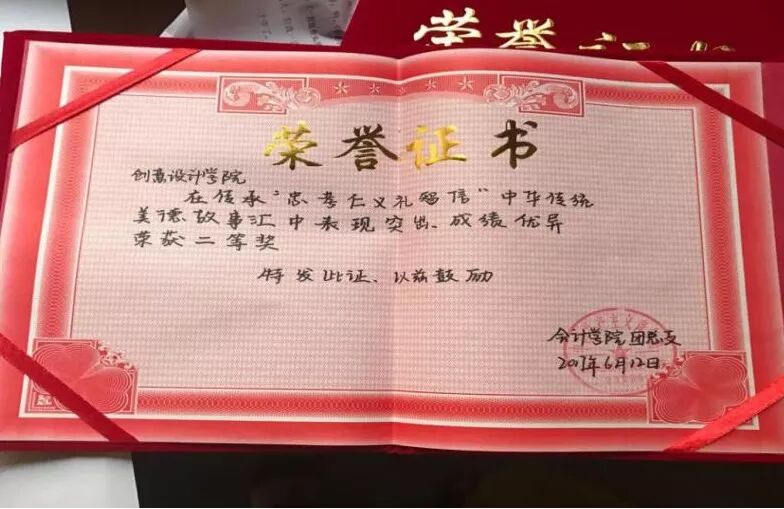 荣誉证书
荣誉证书
创意设计学院
在传承"忠孝仁义礼智信"中华传统
美德故事汇中表现突出、成绩优异
荣获二等奖
特发此证、以兹鼓励
会计学院团总支
2017年6月12日